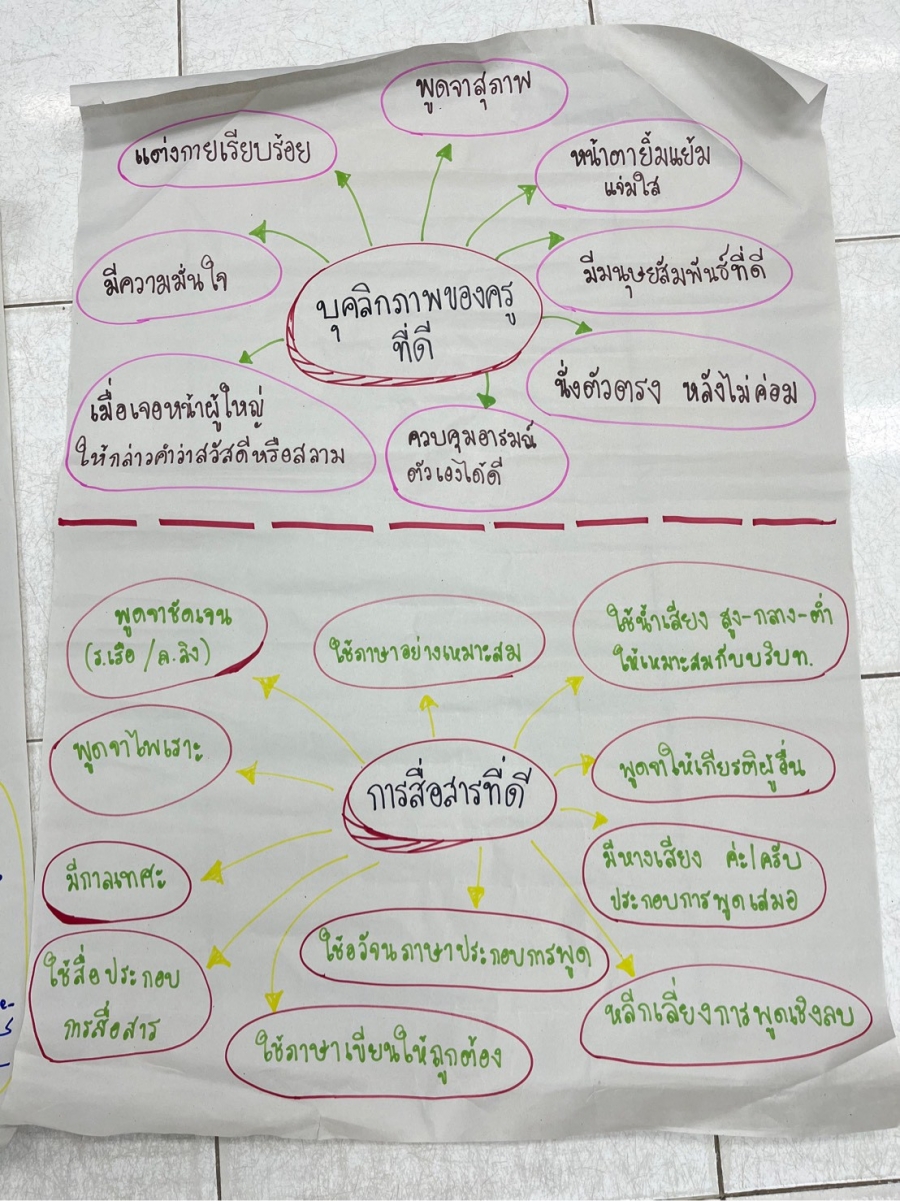 พูดจาสุภาพ
แต่งกายเรียบร้อย
หน้าตายิ้มแย้ม
แจ่มใส
มีความมั่นใจ
บุคลิกภาพของครู
ที่ดี
มีมนุษยสัมพันธ์ที่ดี
นั่งตัวตรง หลังไม่ค่อม
เมื่อเจอหน้าผู้ใหญ่
ให้กล่าวคำว่าสวัสดีหรือสลาม
ควบคุมอารมณ์
ตัวเองได้ดี
พูดจาชัดเจน
(ร.เรือ / ล.ลิง)
ใช้ภาษาอย่างเหมาะสม
ใช้น้ำเสียง สูง-กลาง-ต่ำ
ให้เหมาะสมกับบริบท.
พูดจาไพเราะ
การสื่อสารที่ดี
พูดจาให้เกียรติผู้อื่น
มีกาลเทศะ
มีหางเสียง ค่ะ/ครับ
ประกอบการพูดเสมอ
ใช้สื่อประกอบ
การสื่อสาร
ใช้อวัจนภาษาประกอบการพูด
ใช้ภาษาเขียนให้ถูกต้อง
หลีกเลี่ยงการพูดเชิงลบ